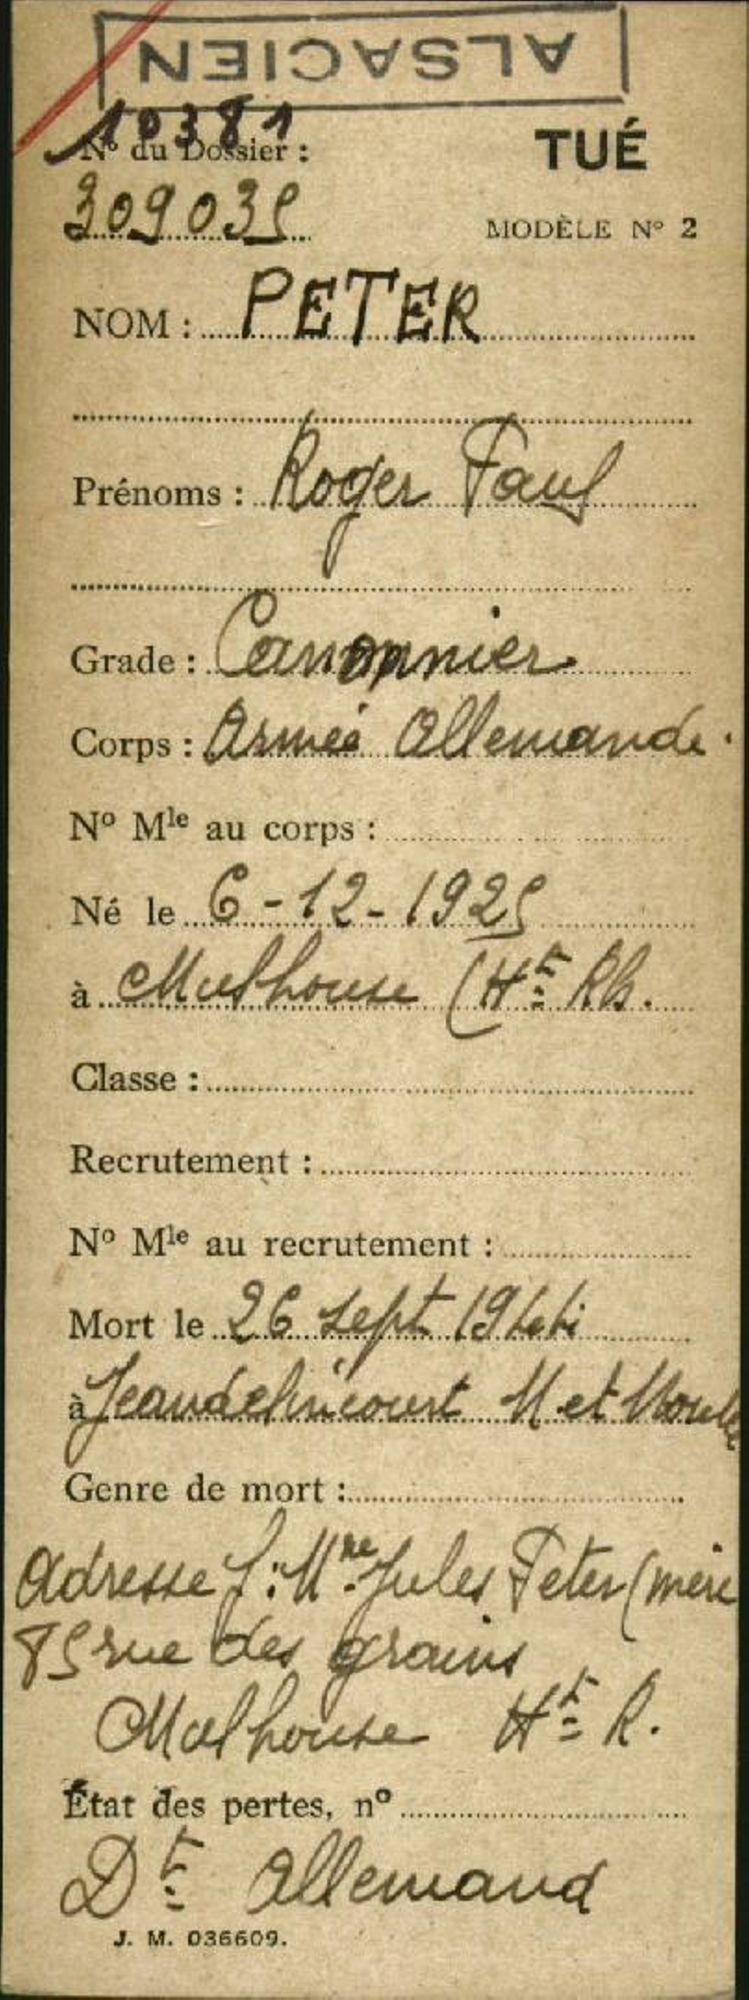 ALSACIEN
10381
N° du Dossier :
TUÉ
309035
MODÈLE N° 2
NOM : PETER
Prénoms : Roger Paul
Grade : Canonnier
Corps : Armée Allemande.
N° Mle au corps :
Né le 6-12-1925
à Mulhouse (Ht Rh.
Classe :
Recrutement :
N° Mle au recrutement :
Mort le 26 sept 1944
à Jeandelincourt M et Moselle
Genre de mort :
Adresse f: Mme Jules Peter (mère
85 rue des grains
Mulhouse Ht R.
État des pertes, n°
Dt Allemand
J. M. 036609.